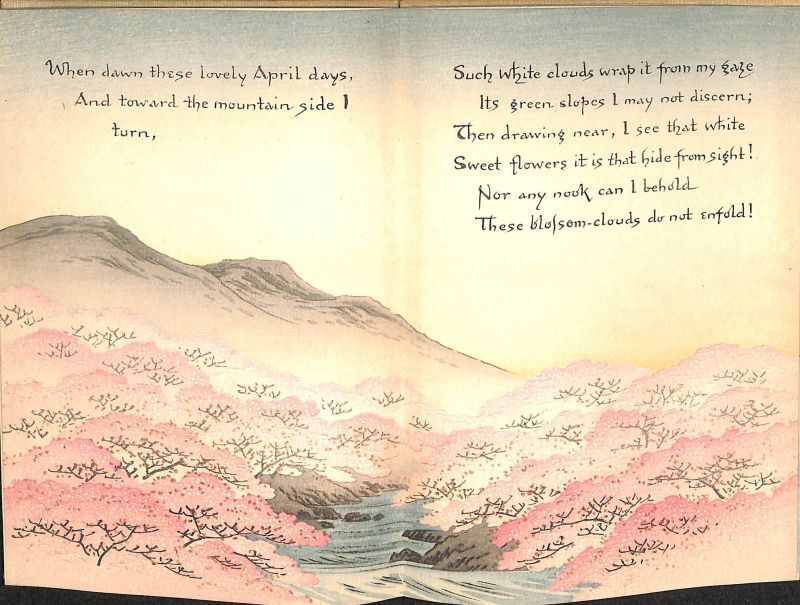 When dawn these lovely April days,
And toward the mountain side I
turn,
Such white clouds wrap it from my gaze
Its green slopes I may not discern;
Then drawing near, I see that white
Sweet flowers it is that hide from sight!
Nor any nook can I behold
These blossom-clouds do not enfold!